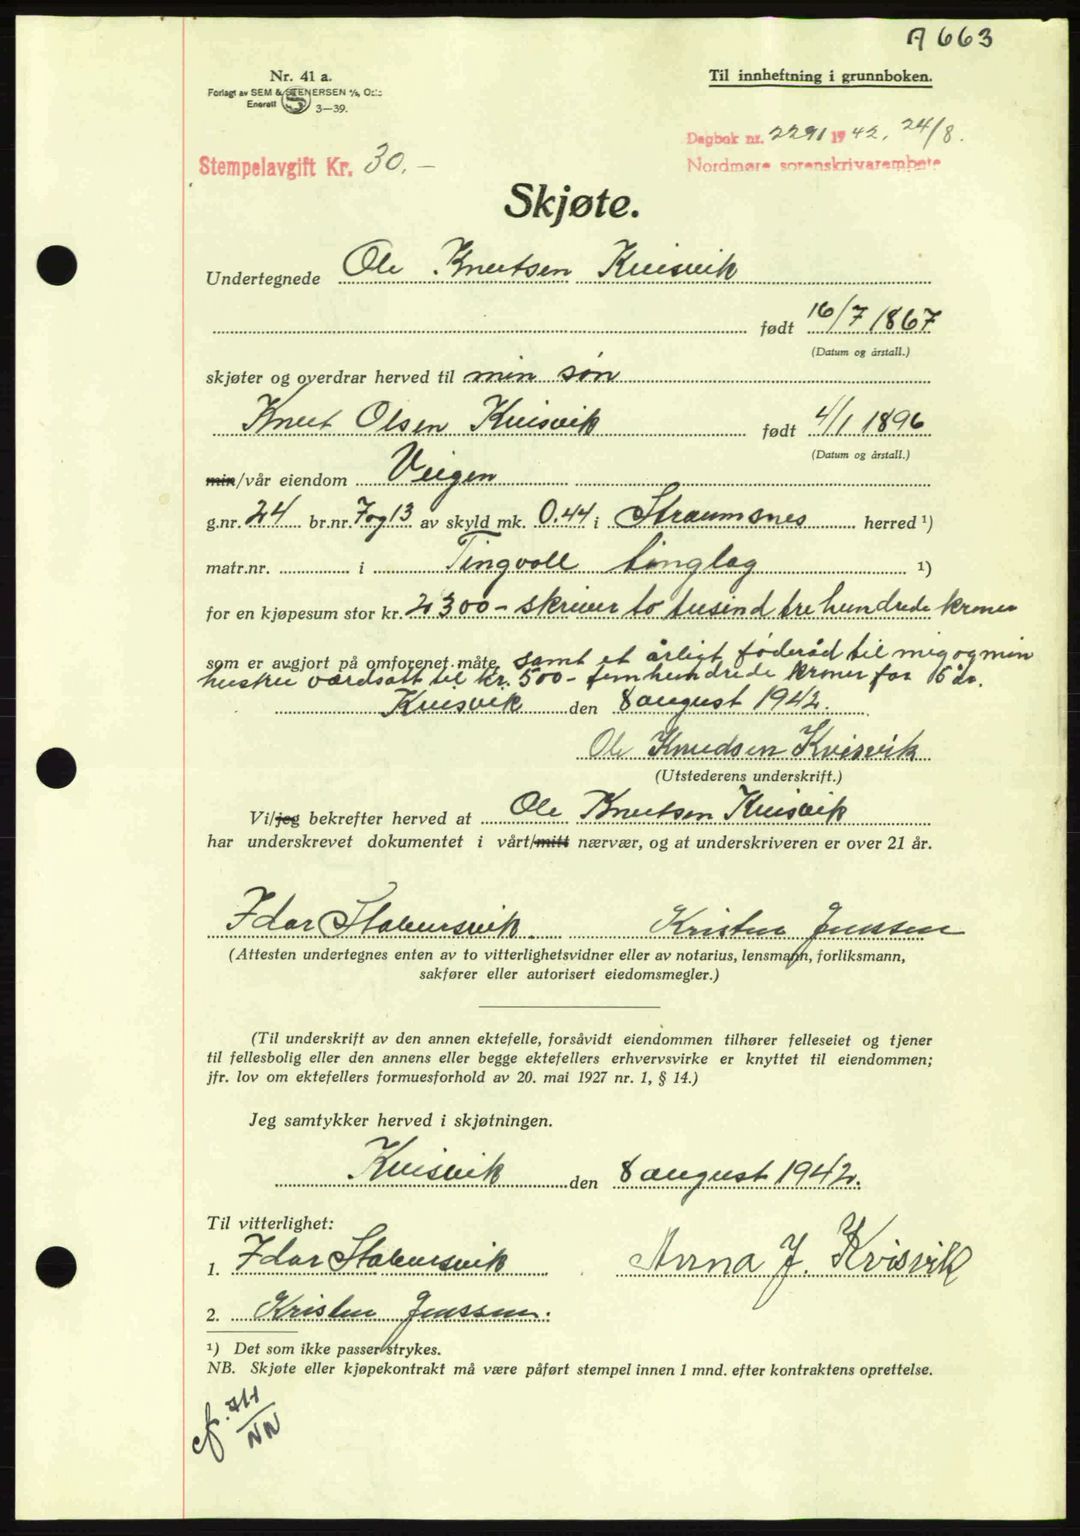 A 663
Nr. 41 a.
Til innheftning i grunnboken.
Forlagt av SEM & STENERSEN A/S, Oslo
Enerett S 3—39.
Dagbok nr. 2291 1942. 24/8.
Stempelavgift Kr. 30.–
Nordmøre sorenskrivarembete
Skjøte.
Undertegnede Ole Knutsen Kvisvik
født 16/7 1867
(Datum og årstall.)
skjøter og overdrar herved til min søn
Knut Olsen Kvisvik født 4/1 1896
(Datum og årstall.)
min/vår eiendom Veigen
g.nr. 24 br.nr. 7 og 13 av skyld mk. 0.44 i Straumsnes herred ¹)
matr.nr. i Tingvoll tinglag ¹)
for en kjøpesum stor kr. 2300– skriver to tusind tre hundrede kroner
som er avgjort på omforenet måte samt et årligt føderåd til mig og min
hustru værdsatt til kr. 500– femhundrede kroner for 15 år.
Kvisvik den 8 august 1942.
Ole Knudsen Kvisvik
(Utstederens underskrift.)
Vi/jeg bekrefter herved at Ole Knutsen Kvisvik
har underskrevet dokumentet i vårt/mitt nærvær, og at underskriveren er over 21 år.
Idar Stabursvik Kristen Jenssen
(Attesten undertegnes enten av to vitterlighetsvidner eller av notarius, lensmann, forliksmann,
sakfører eller autorisert eiedomsmegler.)
(Til underskrift av den annen ektefelle, forsåvidt eiendommen tilhører felleseiet og tjener
til fellesbolig eller den annens eller begge ektefellers erhvervsvirke er knyttet til eiendommen;
jfr. lov om ektefellers formuesforhold av 20. mai 1927 nr. 1, § 14.)
Jeg samtykker herved i skjøtningen.
Kvisvik den 8 august 1942.
Til vitterlighet:
1. Idar Stabursvik Anna J. Kvisvik
2. Kristen Jenssen.
¹) Det som ikke passer strykes.
NB. Skjøte eller kjøpekontrakt må være påført stempel innen 1 mnd. efter kontraktens oprettelse.
NN